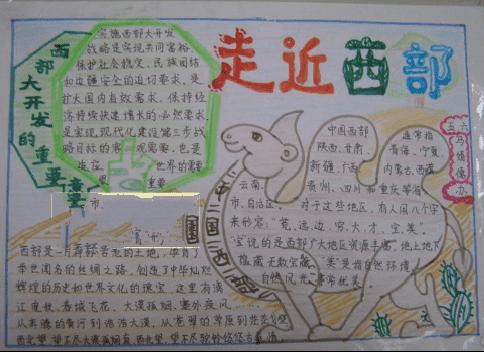 走近西部
西部大开发的重要意义
实施西部大开发
战略是实现共同富裕、
保护社会稳定、民族团结
和边疆安全的迫切要求，是
扩大国内有效需求，保持经
济持续快速增长的必然要求，
是实现现代化建设第三步战
略目标的客观需要，也是
世界的需要
重要
中国西部
通常指
陕西、甘肃、
青海、宁夏、
新疆、广西、
内蒙古、西藏、
云南、
贵州、四川和重庆等
市、自治区。
对于这些地区，有人用八个字
来形容：“荒、远、边、穷、大、才、宝、美”。
“宝”说的是西部广大地区资源丰富，地上地下
蕴藏无数宝藏，“美”是指自然环境，
自然风光非常优美。
市、
西部是一片
土地，孕育了
举世闻名的丝绸之路，创造了中华灿烂
辉煌的历史和世界文化的瑰宝，这里有漓
江夜歌，春城飞花，大漠孤烟，塞外疾风
从奔腾的黄河到浩浩大漠，从苍翠的草原到
西北望，望不尽大漠孤烟直，西北望，望不尽驼铃